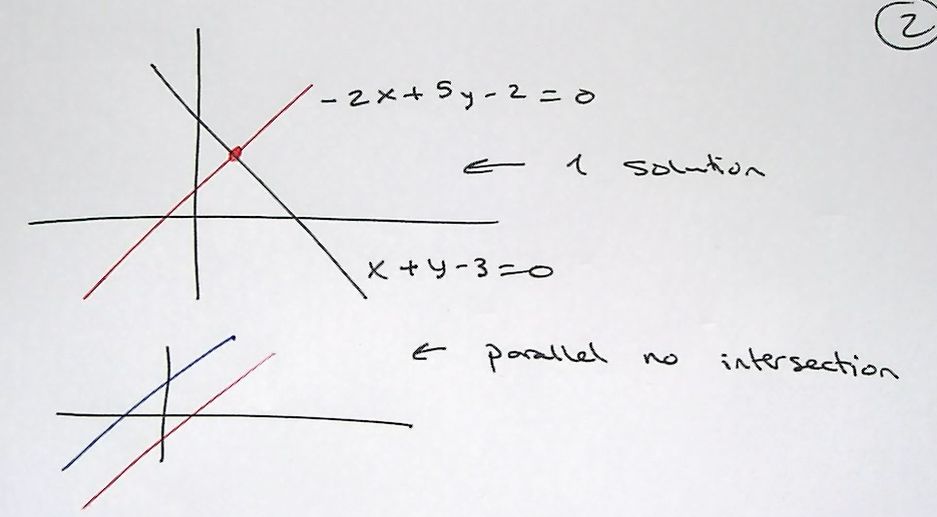 2
-2x+5y-2=0
← 1 solution
x+y-3=0
← parallel no intersection